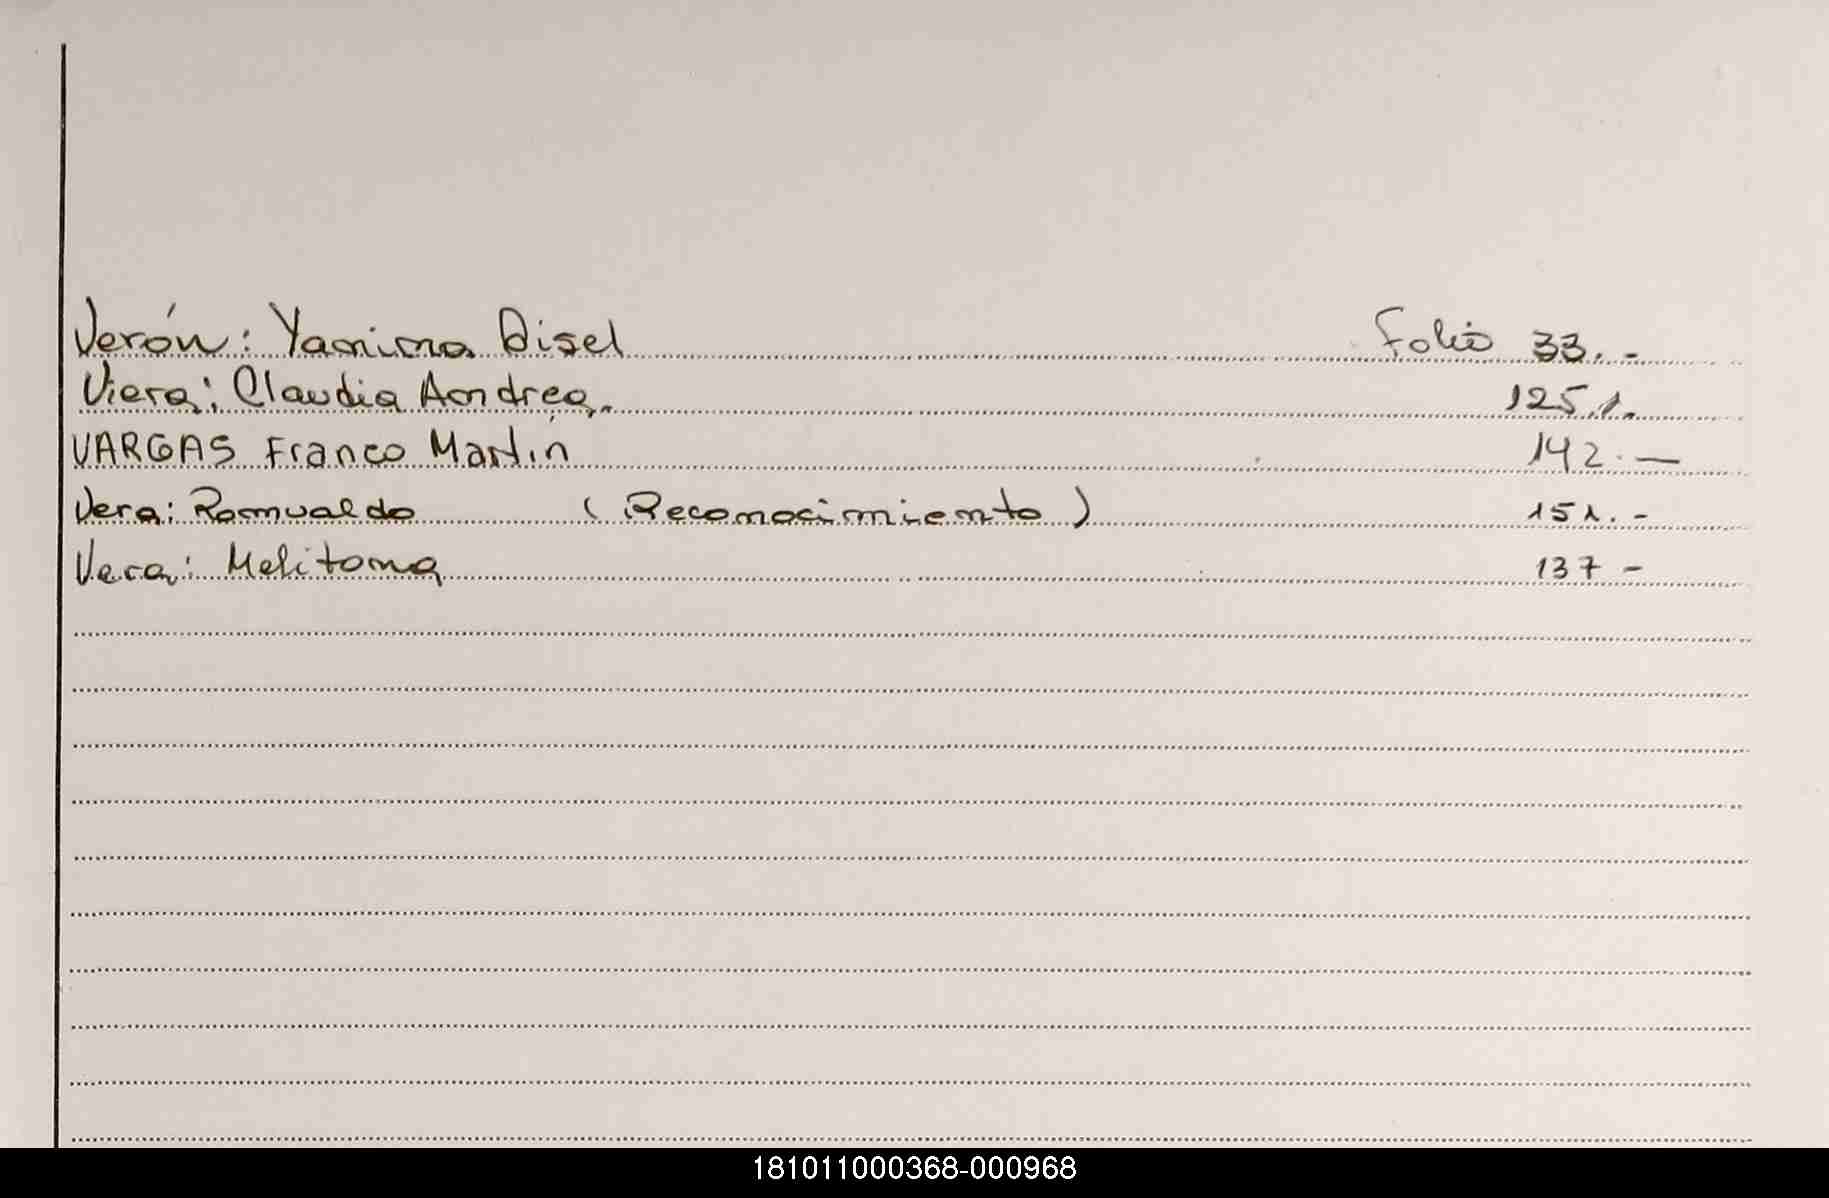 Verón: Yanina Disel Folio 33.-
Viera: Claudia Andrea. 125.1.
VARGAS Franco Martín 142.—
Vera: Romualdo (Reconocimiento) 151.-
Vera: Melitona 137-
181011000368-000968